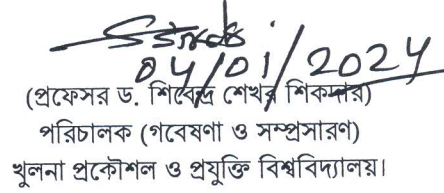 04/01/2024
(প্রফেসর ড. শিবেন্দ্র শেখর শিকদার)
পরিচালক (গবেষণা ও সম্প্রসারণ)
খুলনা প্রকৌশল ও প্রযুক্তি বিশ্ববিদ্যালয়।